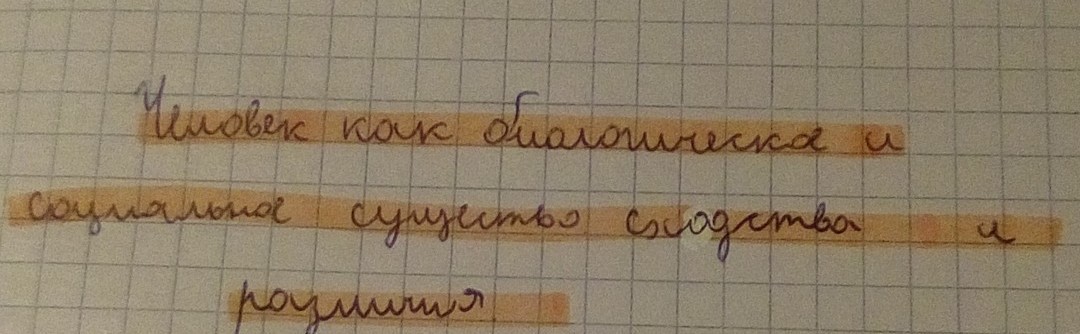 Человек как биологическое и
социальное существо сходства и
различия